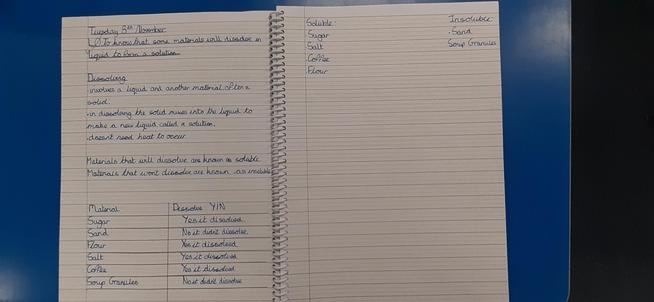 Tuesday 8th November
LO To know that some materials will dissolve in
liquid to form a solution.
Dissolving
- involves a liquid and another material, often a
solid.
- in dissolving the solid mixes into the liquid to
make a new liquid called a solution.
- doesn't need heat to occur
Materials that will dissolve are known as soluble.
Materials that won't dissolve are known as insoluble
Material Dissolve Y/N
Sugar Yes it dissolved
Sand No it didn't dissolve
Flour Yes it dissolved
Salt Yes it dissolved
Coffee Yes it dissolved
Soup Granules No it didn't dissolve
Soluble: Insoluble
Sugar - Sand
Salt Soup Granules
Coffee
Flour